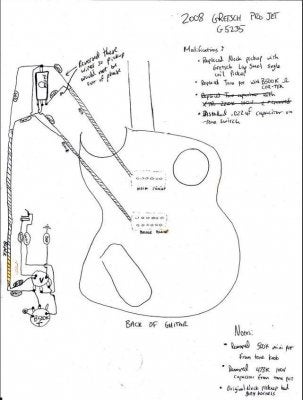 2008 GRETSCH PRO JET
G5235
Modifications:
• Replaced Neck pickup with
Gretsch Lap Steel Single
coil Pickup
• Replaced Tone pot with B500K Ω
• Replaced Tone capacitor with
• Installed .022uf capacitor on
tone switch
Reversed these
wires so pickup
would not be
out of phase
NECK PICKUP
BRIDGE PICKUP
BACK OF GUITAR
Notes:
• Removed 500K mini pot
from tone knob
• Removed
capacitor from tone pot
• Original Neck pickup had